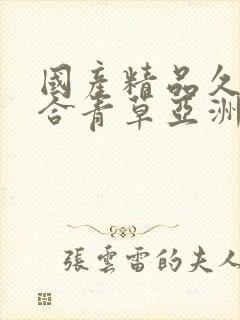 國產精品久
合青草亞洲
張雲雷的夫人